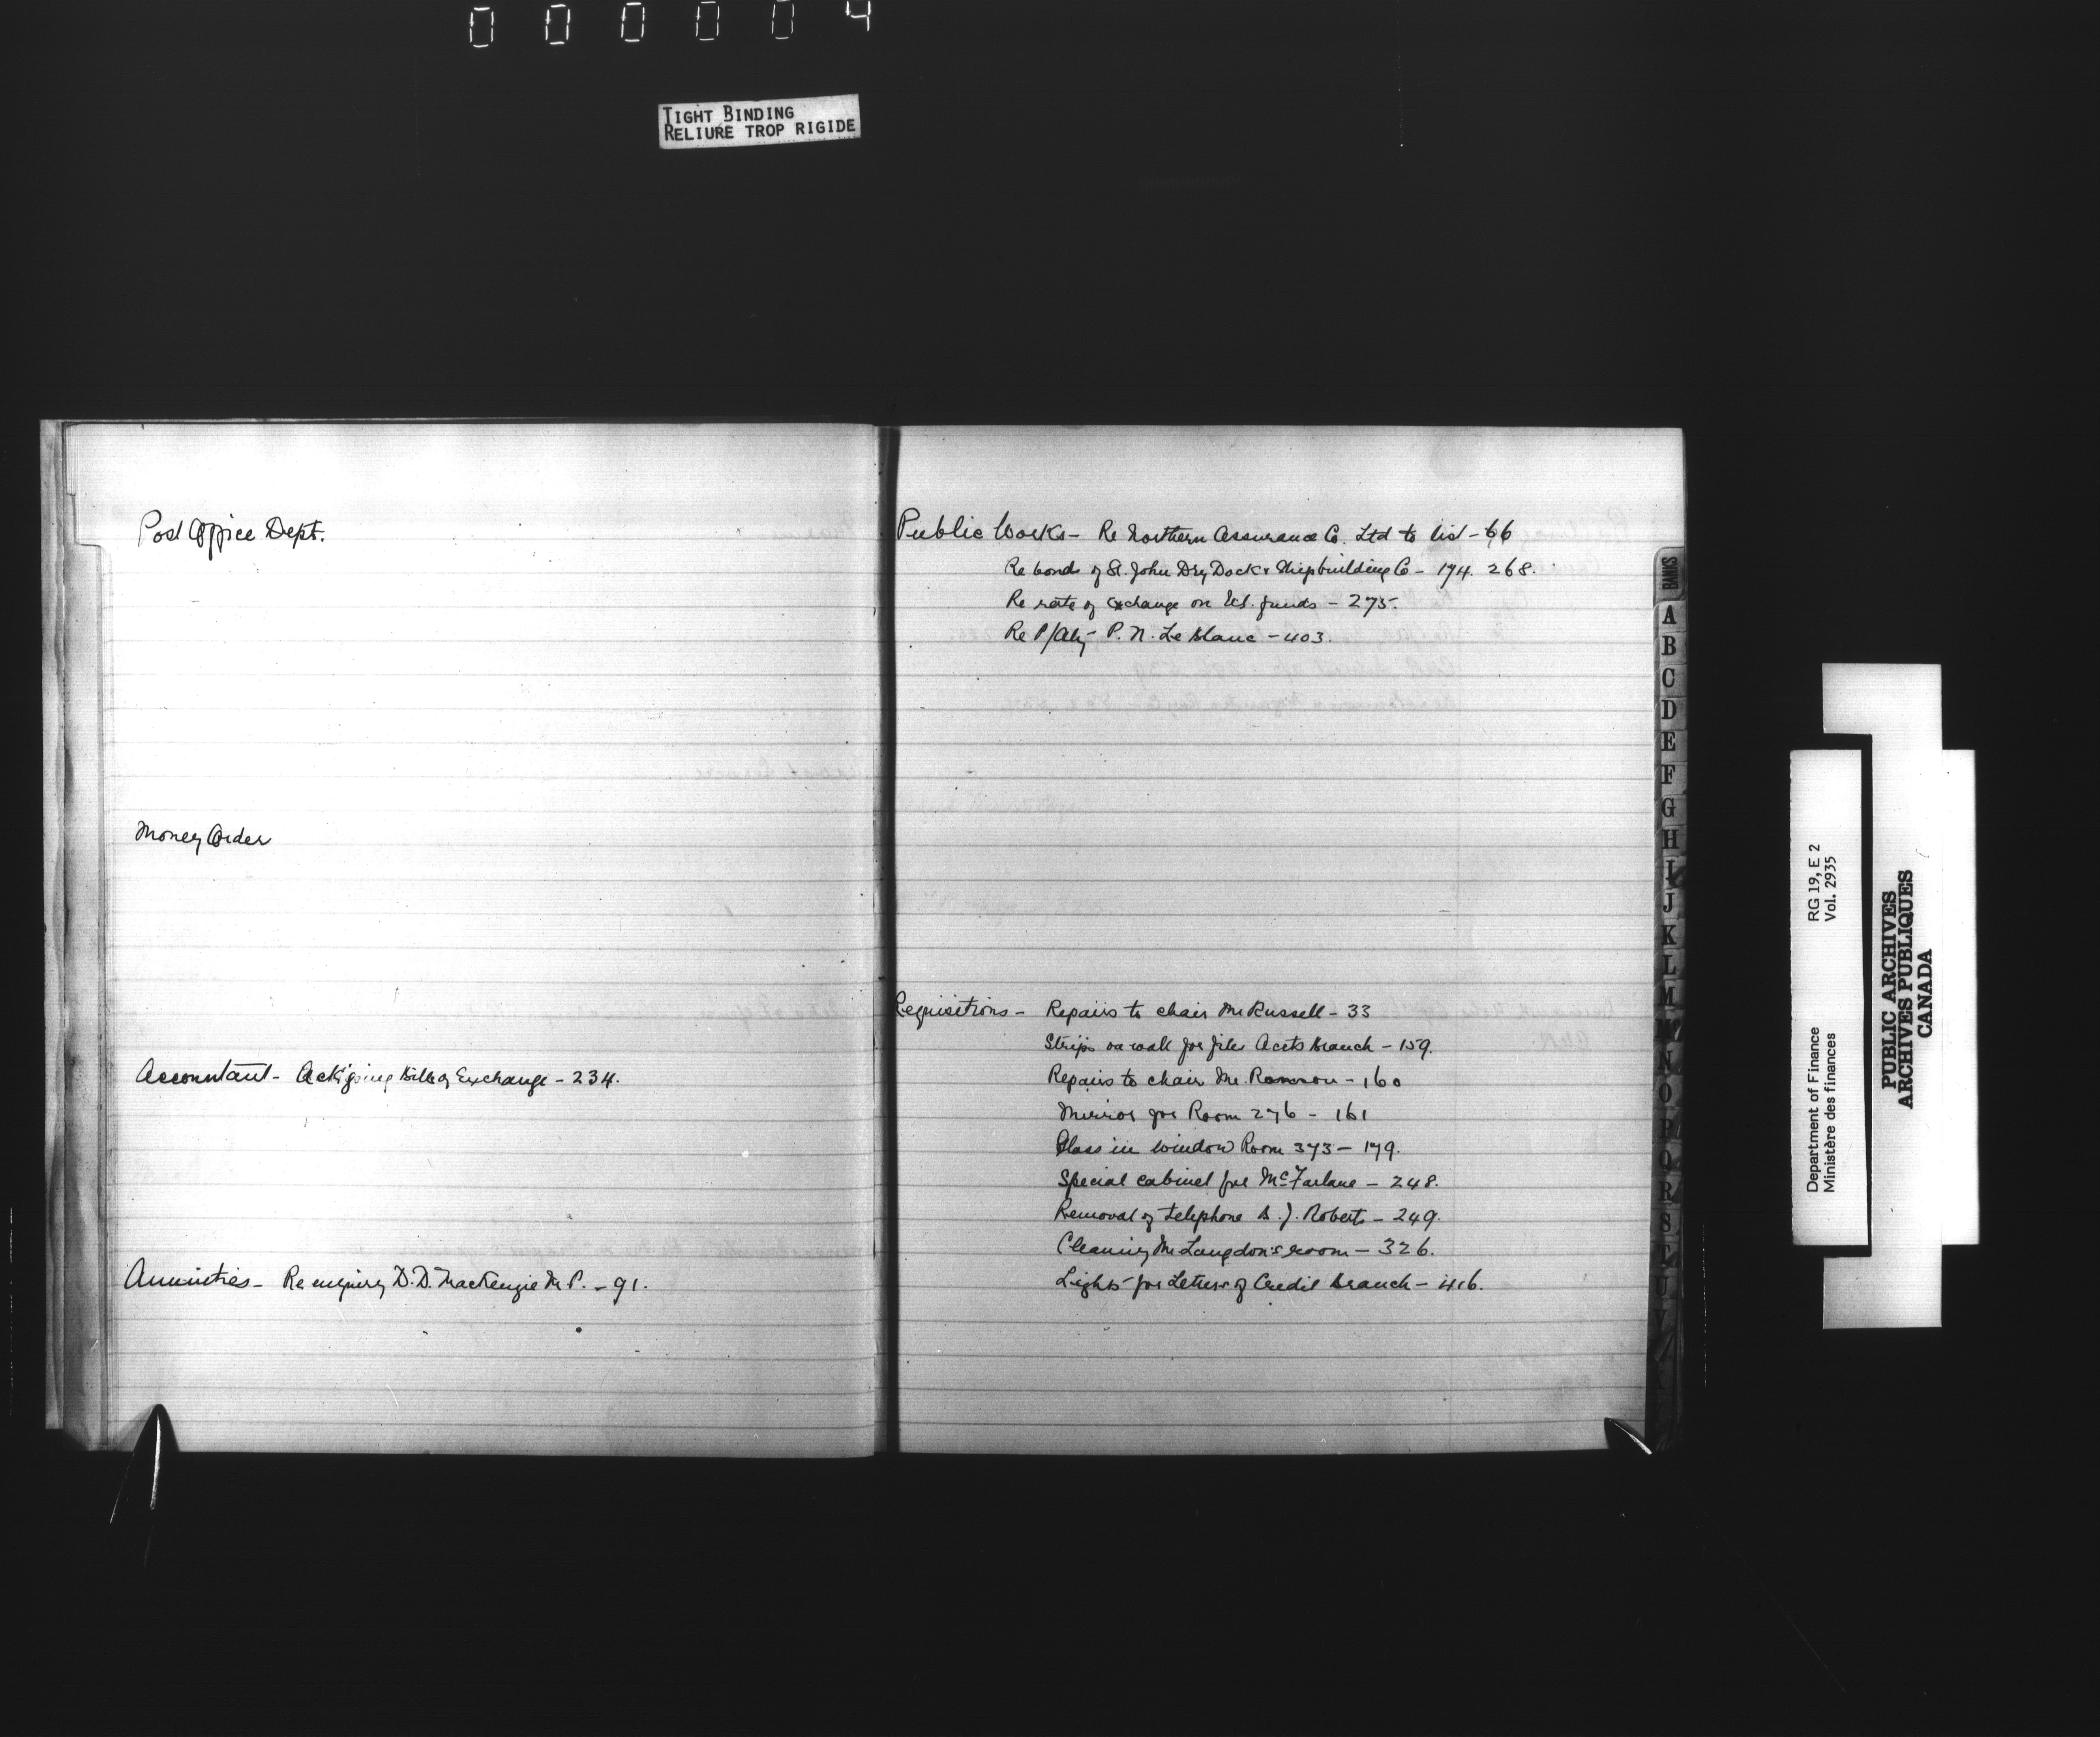 000004
TIGHT BINDING
RELIURE TROP RIGIDE
Post Office Dept.
Money Order
Accountant - Ackg going Bills of Exchange - 234.
Annuities - Re enquiry D.D. MacKenzie M.P. - 91.
Public Works - Re Northern Assurance Co. Ltd to list - 66
Re bonds of St. John Dry Dock & Shipbuilding Co - 174. 268.
Re rate of exchange on U.S. funds - 275.
Re P/Aty - P. N. Le Blanc - 403.
Requisitions - Repairs to chair Mr Russell - 33
Strips on wall for files Accts Branch - 159.
Repairs to chair Mr. - 160
Mirror for Room 276 - 161
Glass in window Room 373 - 179.
Special cabinet for McFarlane - 248.
Removal of telephone B. J. Roberts - 249.
Cleaning Mr Langdon's room - 326.
Lights for Letters of Credit Branch - 416.
BANKS
A
B
C
D
E
F
G
H
I
J
K
L
M
N
O
P
Q
R
S
T
U
V
Department of Finance RG 19, E 2
Ministère des finances Vol. 2935
PUBLIC ARCHIVES
ARCHIVES PUBLIQUES
CANADA